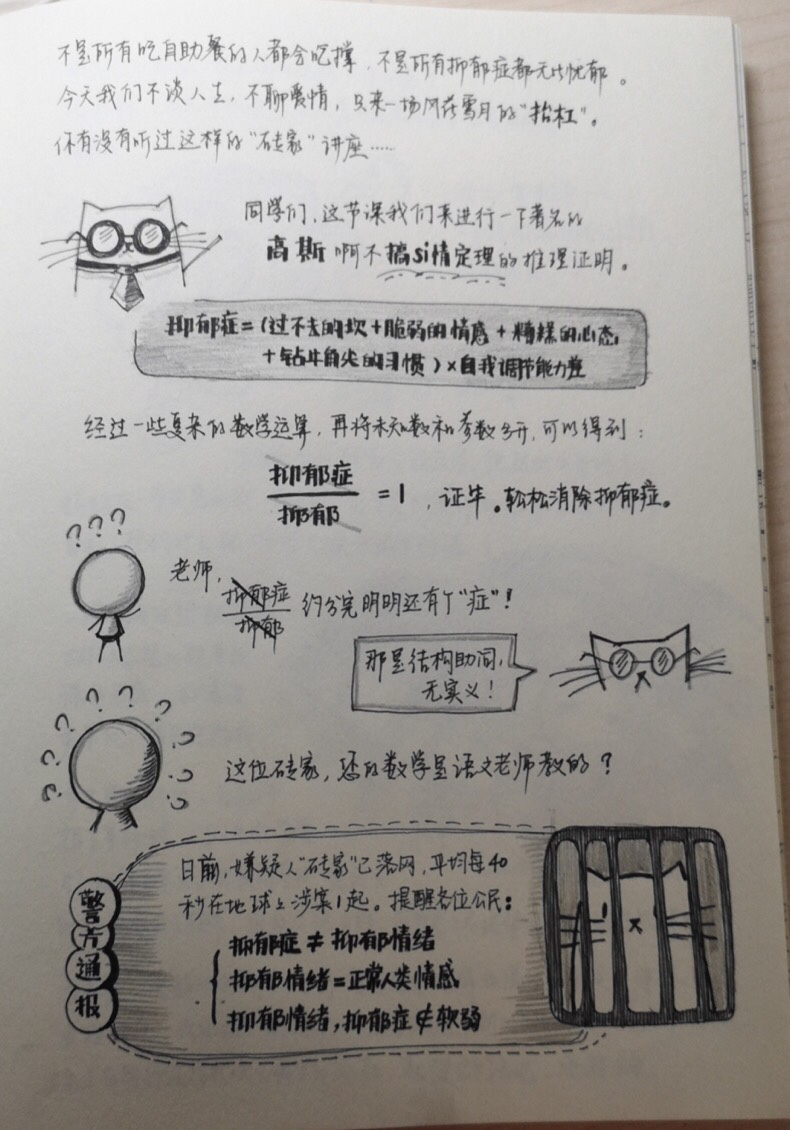 不是所有吃自助餐的人都会吃撑，不是所有抑郁症都无比忧郁。
今天我们不谈人生，不聊爱情，只来一场风花雪月的“抬杠”。
你有没有听过这样的“砖家”讲座……
同学们，这节课我们来进行一下著名的
高斯啊不搞si情定理的推理证明。
抑郁症=(过不去的坎+脆弱的情感+糟糕的心态
+钻牛角尖的习惯)×自我调节能力差
经过一些复杂的数学运算，再将未知数和参数分开，可以得到：
抑郁症
抑郁
=1，证毕。轻松消除抑郁症。
???
老师，
抑郁症
抑郁
约分完明明还有个“症”！
那是结构助词，
无实义！
? ? ? ? ? ? ? ? ?
这位砖家，您的数学是语文老师教的？
警方通报
日前，嫌疑人“砖家”已落网，平均每40
秒在地球上涉案1起。提醒各位公民：
抑郁症≠抑郁情绪
抑郁情绪=正常人类情感
抑郁情绪，抑郁症∉软弱